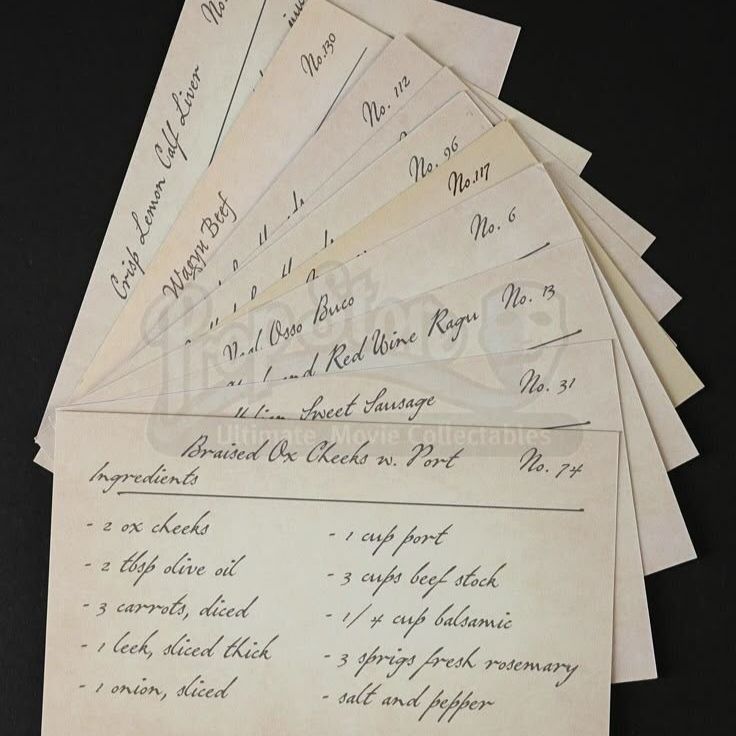 No.
Crisp Lemon Calf Liver
No.130
Wagyu Beef
No. 112
No. 96
No.117
No. 6
Veal Osso Buco
No. 13
and Red Wine Ragu
No. 31
Italian Sweet Sausage
Prop Store
Ultimate Movie Collectables
Braised Ox Cheeks w. Port No. 74
Ingredients
- 2 ox cheeks
- 2 tbsp olive oil
- 3 carrots, diced
- 1 leek, sliced thick
- 1 onion, sliced
- 1 cup port
- 3 cups beef stock
- 1/4 cup balsamic
- 3 sprigs fresh rosemary
- salt and pepper